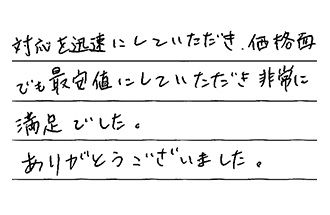 対応を迅速にしていただき、価格面
でも最安値にしていただき非常に
満足でした。
ありがとうございました。